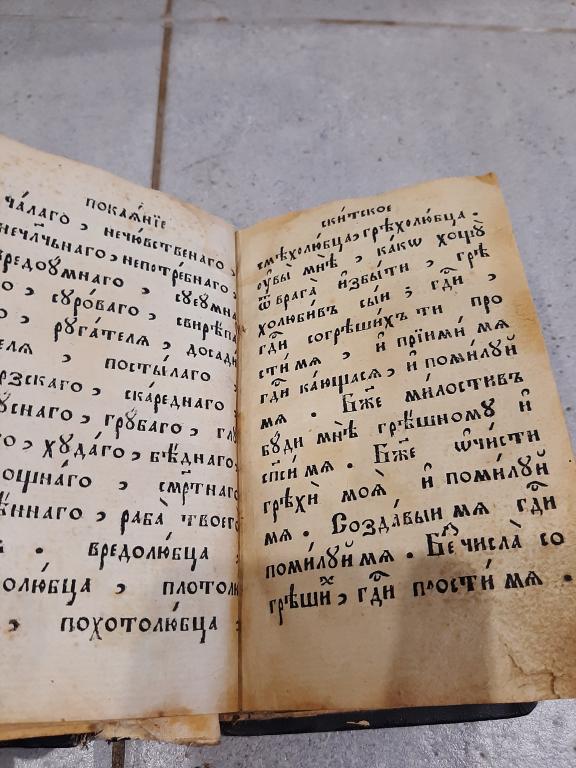 ПОКАѦ́НЇЕ
ча́лагѻ , нечю́вственагѻ ,
непотре́бнаго ,
вредоу́мнаго , суеу́мна
о , суро́ваго , свирѣ́па
о , руга́телѧ , досади
елѧ , посты́лаго ,
рзскаго , ска́реднаго ,
у́снаго , гру́баго , гл
о , худа́го , бѣ́днаго ,
ошна́го , сме́ртнаго
ѣннаго , раба̀ твоего
. вредолю́бца ,
олю́бца , плотолю
, похотолю́бца ,
СКИ́ТСКОЕ
смѣхолю́бца , грѣхолю́бца .
ᲂу҆вы̀ мнѣ̀ , ка́кѡ хощꙋ̀
ѿ врага̀ и҆збы́ти , грѣ
холюби́въ сы́и ; гд҇и ,
гд҇и согрѣши́хъ ти про
сти́ мѧ , и҆ прїими́ мѧ
гд҇и ка́ющасѧ , и҆ поми́луй
мѧ . Бж҃е ми́лостивъ
бу́ди мнѣ̀ грѣ́шному и҆
сп҃си́ мѧ . Бж҃е ѡ҆чи́сти
грѣхѝ моѧ̀ и҆ поми́луй
мѧ . Созда́выи мѧ гд҇и
поми́луй мѧ . Беꙁ числа̀ со
грѣши́х , гд҇и прости́ мѧ .